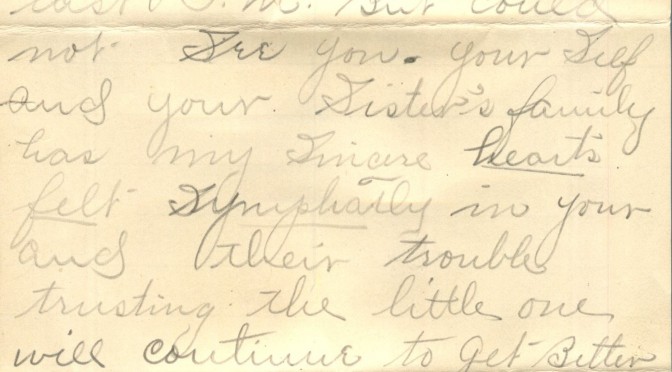 P.M. But could
not See you. your Self
and your Sister's family
has my Sincere hearts
felt Symphatly in your
and their trouble
trusting the little one
will continue to get Better